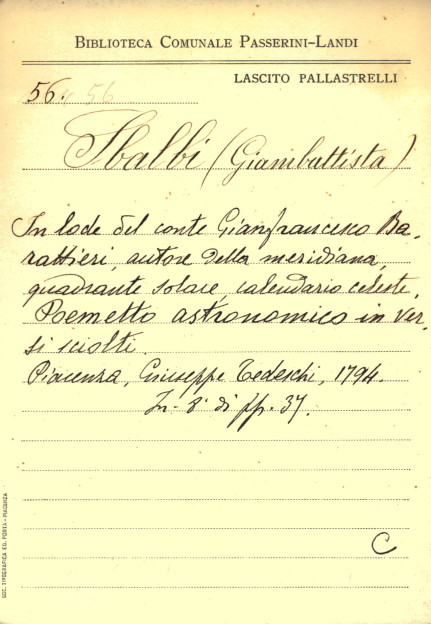 BIBLIOTECA COMUNALE PASSERINI-LANDI
LASCITO PALLASTRELLI
56. 56
Sbalbi (Giambattista)
In lode del conte Gianfrancesco Ba,
rattieri, autore della meridiana,
quadrante solare, calendario celeste,
Poemetto astronomico in ver,
si sciolti.
Piacenza, Giuseppe Tedeschi, 1794.
In-8° di pp. 37.
C
SOC. TIPOGRAFICA ED. PORTA - PIACENZA